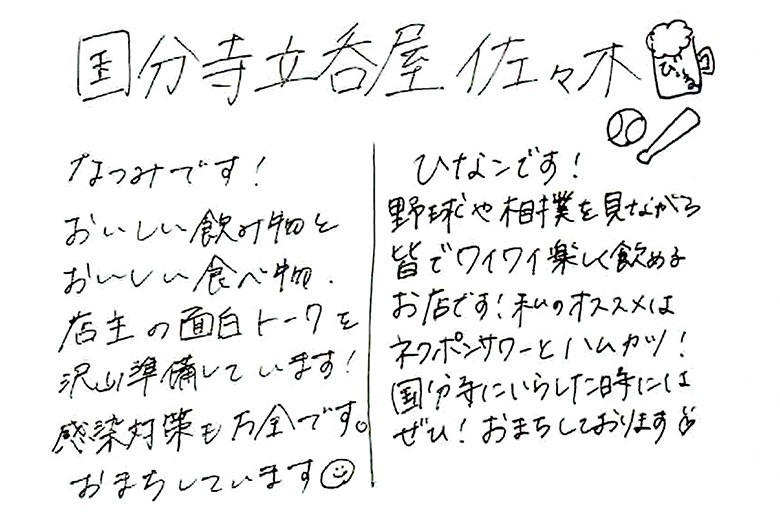 国分寺立呑屋 佐々木
びぃる
なつみです！
おいしい飲み物と
おいしい食べ物、
店主の面白トークを
沢山準備しています！
感染対策も万全です。
おまちしています
ひなこです！
野球や相撲を見ながら
皆でワイワイ楽しく飲める
お店です！私のオススメは
ネクポンサワーとハムカツ！
国分寺にいらした時には
ぜひ！おまちしております